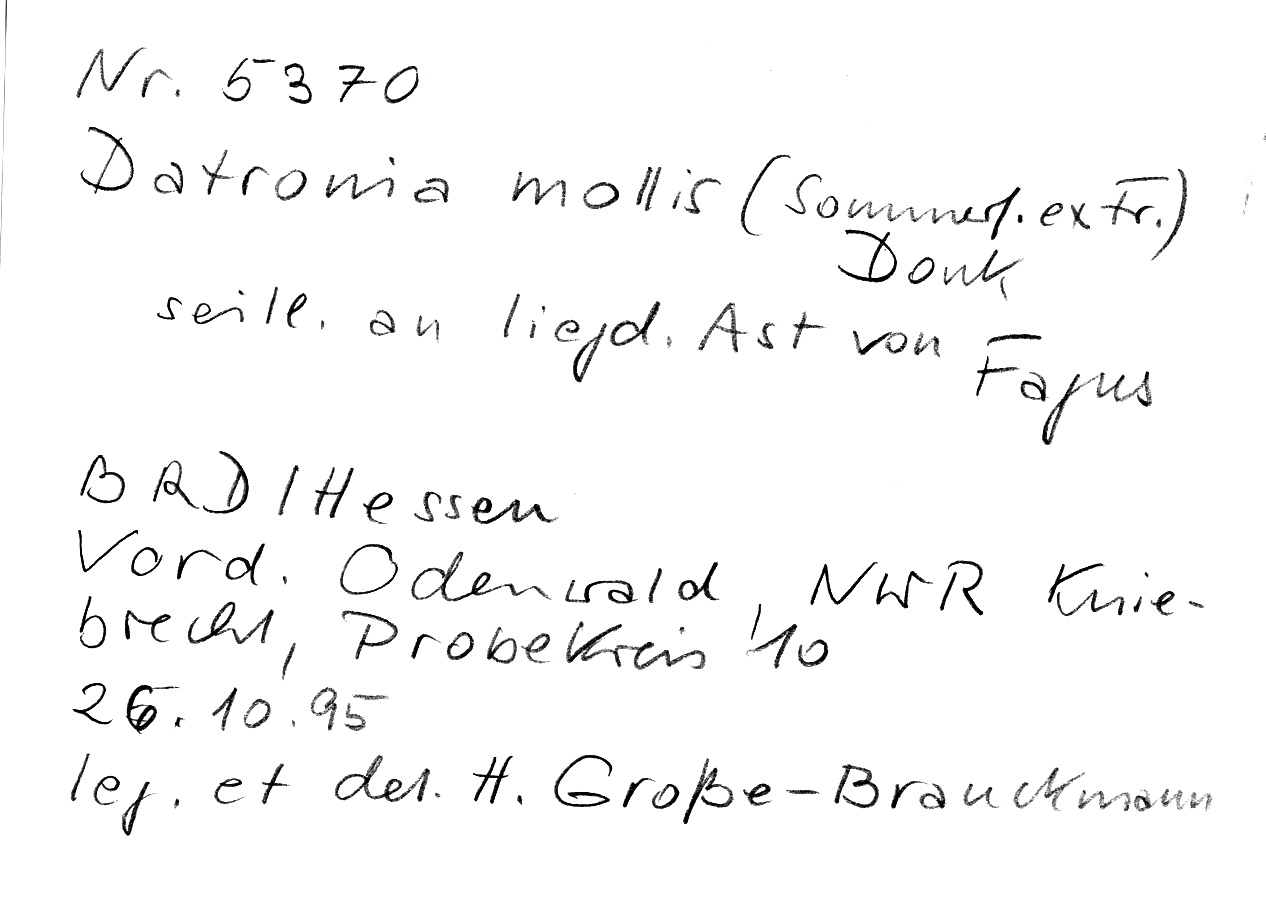 Nr. 5370
Datronia mollis (Sommerf. ex Fr.)
Donk
seitl. an liegd. Ast von Fagus
BRD/Hessen
Vord. Odenwald, NWR Knie-
brecht, Probekreis 10
26.10.95
leg. et det. H. Große-Brauckmann